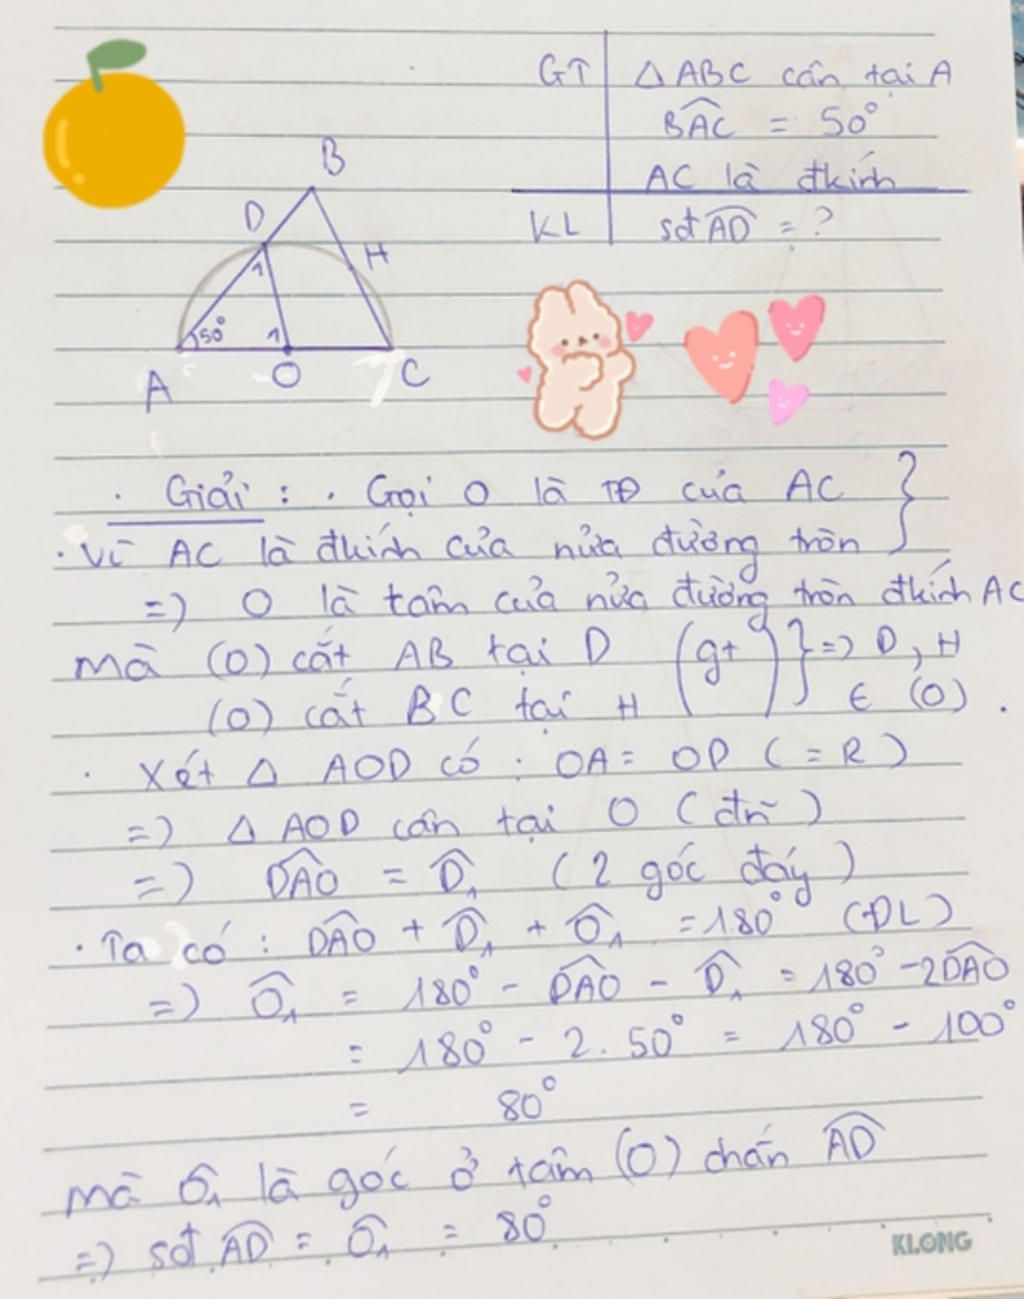 GT ΔABC cân tại A
B̂AC = 50°
AC là đkính
KL sđ A͡D = ?
B
D
H
1
50° 1
A O C
· Giải : · Gọi O là TĐ của AC
· Vì AC là đkính của nửa đường tròn
=) O là tâm của nửa đường tròn đkính AC
mà (O) cắt AB tại D (gt) } => D, H
(O) cắt BC tại H ∈ (O) .
· Xét Δ AOD có : OA = OD ( = R )
=) Δ AOD cân tại O ( đn )
=) D̂AO = D̂₁ ( 2 góc đáy )
· Ta có : D̂AO + D̂₁ + Ô₁ = 180° (ĐL)
=) Ô₁ = 180° - D̂AO - D̂₁ = 180° - 2D̂AO
= 180° - 2. 50° = 180° - 100°
= 80°
mà Ô₁ là góc ở tâm (O) chắn A͡D
=) sđ A͡D = Ô₁ = 80°
KLONG